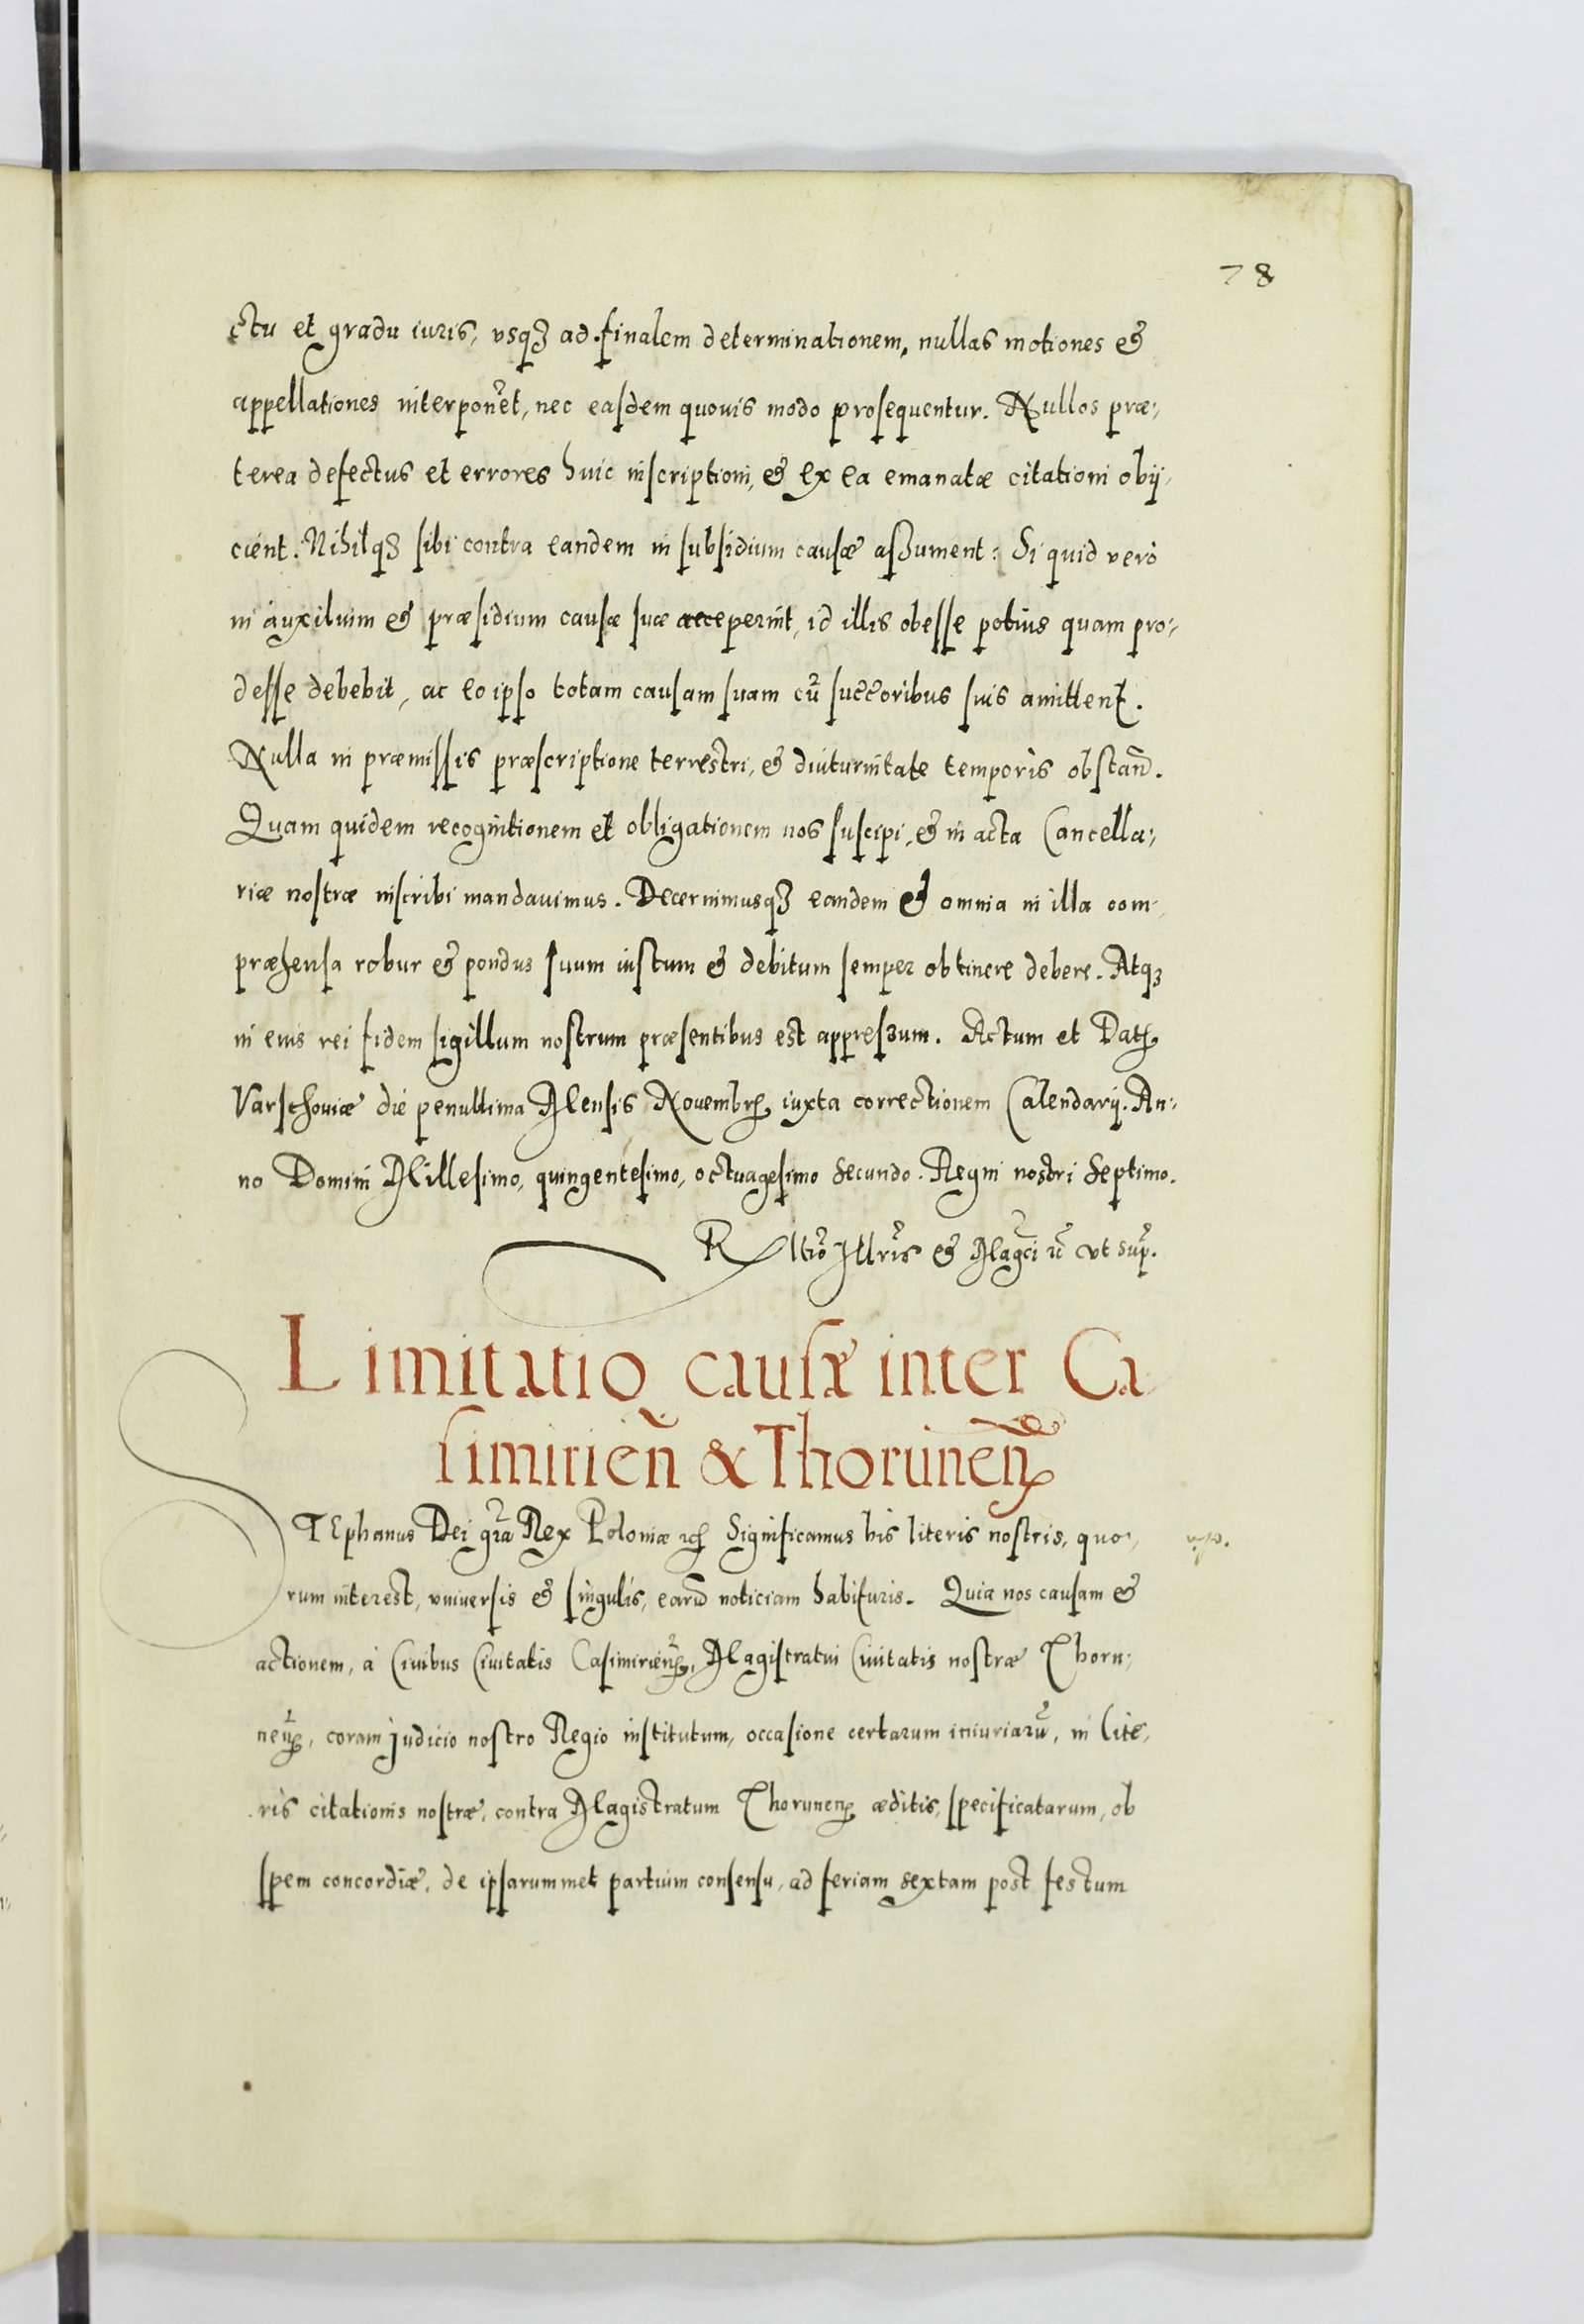 78
ctu et gradu iuris, vsq3 ad finalem determinationem, nullas motiones &
appellationes interponet, nec easdem quouis modo prosequentur. Nullos præ-
terea defectus et errores huic inscriptioni, & ex ea emanatæ citationi obij-
cient. Nihilq3 sibi contra eandem in subsidium causæ assument: Si quid verò
in auxilium & præsidium causæ suæ acceperint, id illis obesse potius quam pro-
desse debebit, ac eo ipso totam causam suam cū succoribus suis amittent.
Nulla in præmissis præscriptione terrestri, & diuturnitate temporis obstan̄.
Quam quidem recognitionem et obligationem nos suscipi, & in acta Cancella-
riæ nostræ inscribi mandauimus. Decernimusq3 eandem & omnia in illa com-
præhensa robur & pondus suum iustum & debitum semper obtinere debere. Atq3
in eius rei fidem sigillum nostrum præsentibus est appressum. Actum et Dat
Varschouiæ die penultima Mensis Nouembr, iuxta correctionem Calendarij. An-
no Domini Millesimo, quingentesimo, octuagesimo secundo. Regni nostri septimo.
Rltio Illris & Magci ut sup.
Limitatio causæ inter Ca
simirien̄ & Thorunen̄
STEphanus Dei gra Rex Poloniæ Significamus his literis nostris, quo-
rum interest, vniuersis & singulis, earū noticiam habituris. Quia nos causam &
actionem, à Ciuibus Ciuitatis Casimirien̄, Magistratui Ciuitatis nostræ Thoru-
nen̄, coram Judicio nostro Regio institutum, occasione certarum iniuriarū, in lite-
ris citationis nostræ, contra Magistratum Thorunen æditis, specificatarum, ob
spem concordiæ, de ipsarummet partium consensu, ad feriam sextam post festum